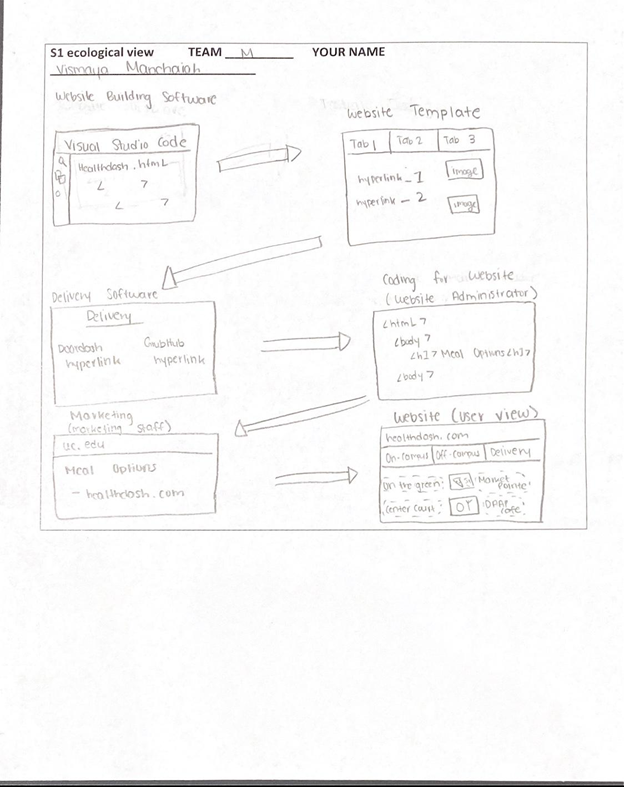 S1 ecological view TEAM M YOUR NAME
Vismaya Manchaiah
Website Building Software
Website Template
Visual Studio Code
Healthdash.html
< >
< >
Tab 1 Tab 2 Tab 3
hyperlink - 1 image
hyperlink - 2 image
Delivery Software
Delivery
Doordash GrubHub
hyperlink hyperlink
Coding for Website
(Website Administrator)
<html>
<body>
<h1> Meal Options <h1>
<body>
Marketing
(marketing staff)
uc.edu
Meal Options
- healthdash.com
Website (User view)
healthdash.com
On-campus Off-campus Delivery
On the green:
Center Court:
Cafe